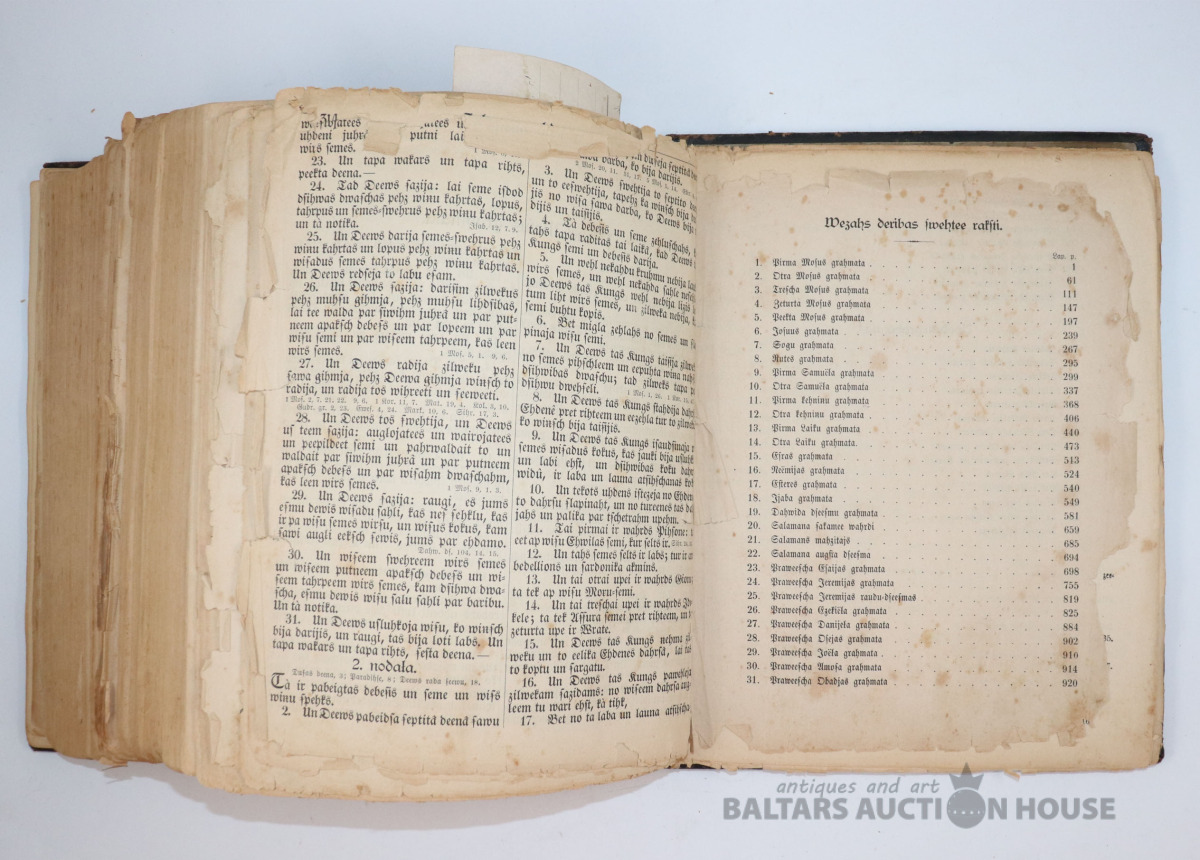 wairojatees
uhdeni juhrâ putni lai
wirs semes.
23. Un tapa wakars un tapa rihts,
peekta deena.—
24. Tad Deews sazija: lai seme isdod
dsihwas dwaschas pehz winu kahrtas, lopus,
tahrpus un semes-swehrus pehz winu kahrtas;
un tà notika.
Jsab. 12, 7. 9.
25. Un Deews darija semes-swehrus pehz
winu kahrtas un lopus pehz winu kahrtas un
wisadus semes tahrpus pehz winu kahrtas.
Un Deews redseja to labu esam.
26. Un Deews sazija: darisim zilwekus
pehz muhsu gihmja, pehz muhsu lihdsibas,
lai tee walda par siwihm juhrâ un par put-
neem apaksch debess un par lopeem un par
wisu semi un par wiseem tahrpeem, kas leen
wirs semes.
1 Mos. 5, 1. 9, 6.
27. Un Deews radija zilweku pehz
sawa gihmja, pehz Deewa gihmja winsch to
radija, un radija tos wihreeti un seeweeti.
1 Mos. 2, 7. 21. 22. 9, 6. 1 Kor. 11, 7. Mat. 19, 4. Kol. 3, 10.
28. Un Deews tos swehtija, un Deews
us teem sazija:auglojatees un wairojatees
un peepildeet semi un pahrwaldait to un
waldait par siwihm juhrâ un par putneem
apaksch debess un par wisahm dwaschahm,
kas leen wirs semes.
1 Mos. 9, 1. 3.
29. Un Deews sazija: raugi, es jums
esmu dewis wisadu sahli, kas nes sehklu, kas
ir pa wisu semes wirsu, un wisus kokus, kam
sawi augli eeksch sewis, jums par ehdamo.
Dahw. ds. 104, 14. 15.
30. Un wiseem swehreem wirs semes
un wiseem putneem apaksch debess un wi-
seem tahrpeem wirs semes, kam dsihwa dwa-
scha, esmu dewis wisu salu sahli par baribu.
Un tà notika.
31. Un Deews usluhkoja wisu, ko winsch
bija darijis, un raugi, tas bija loti labs. Un
tapa wakars un tapa rihts, sesta deena.—
2. nodala.
Dusas deena, 3; Paradihse, 8; Deews rada seewu, 18.
Tà ir pabeigtas debesis un seme un wiss
winu spehks.
2. Un Deews pabeidsa septitâ deenâ sawu
darba, ko bija darijis.
3. Un Deews swehtija to septito
un to eeswehtija, tapehz ka winsch bija
no wisa sawa darba, ko Deews bij
dijis un taisijis.
4. Tà debesis un seme zehluschahs,
tahs tapa raditas tai laikâ, kad Deews
Kungs semi un debesis darija.
5. Un wehl nekahdu kruhmu nebija
wirs semes, un wehl nekahda sahle
jo Deews tas Kungs wehl nebija lizis
tum liht wirs semes, un zilweka nebija,
semi buhtu kopis.
6. Bet migla zehlahs no semes un
pinaja wisu semi.
7. Un Deews tas Kungs taisija
no semes pihschleem un eepuhta wina
dsihwibas dwaschu; tad zilweks tapa
dsihwu dwehseli.
8. Un Deews tas Kungs stahdija
Ehdenê pret rihteem un eezehla tur to
ko winsch bija taisijis.
9. Un Deews tas Kungs isaudsinaja
semes wisadus kokus, kas jauki bija
un labi ehst, un dsihwibas koku
widû, ir laba un launa atsihschanas
10. Un tekots uhdens istezeja no
to dahrsu slapinaht, un no tureenes
jahs un palika par tschetrahm upehm.
11. Tai pirmai ir wahrds Pihsone:
eet ap wisu Ehwilas semi, kur selts ir.
12. Un tahs semes selts ir labs; tur ir
bedellions un sardonika akmins.
13. Un tai otrai upei ir wahrds
ta tek ap wisu Moru-semi.
14. Un tai treschai upei ir wahrds
kele; ta tek Assura semei pret rihteem,
zeturta upe ir Wrate.
15. Un Deews tas Kungs nehma
weku un to eelika Ehdenes dahrsâ, lai
to koptu un sargatu.
16. Un Deews tas Kungs
zilwekam sazidams: no wiseem dahrsa
leem tu wari ehst, kà tihk,
17. Bet no ta laba un launa
Wezahs deribas swehtee raksti.
Lap. p.
1. Pirma Mosus grahmata 1
2. Otra Mosus grahmata 61
3. Trescha Mosus grahmata 111
4. Zeturta Mosus grahmata 147
5. Peekta Mosus grahmata 197
6. Josuus grahmata 239
7. Sogu grahmata 267
8. Rutes grahmata 295
9. Pirma Samuëla grahmata 299
10. Otra Samuëla grahmata 337
11. Pirma kehninu grahmata 368
12. Otra kehninu grahmata 406
13. Pirma Laiku grahmata 440
14. Otra Laiku grahmata 473
15. Esras grahmata 513
16. Neëmijas grahmata 524
17. Esteres grahmata 540
18. Ijaba grahmata 549
19. Dahwida dseesmu grahmata 581
20. Salamana sakamee wahrdi 659
21. Salamans mahzitajs 685
22. Salamana augsta dseesma 694
23. Praweescha Esaijas grahmata 698
24. Praweescha Jeremijas grahmata 755
25. Praweescha Jeremijas raudu-dseesmas 819
26. Praweescha Ezekiëla grahmata 825
27. Praweescha Danijela grahmata 884
28. Praweescha Osejas grahmata 902
29. Praweescha Joëla grahmata 910
30. Praweescha Amosa grahmata 914
31. Praweescha Obadjas grahmata 920
antiques and art
BALTARS AUCTION HOUSE